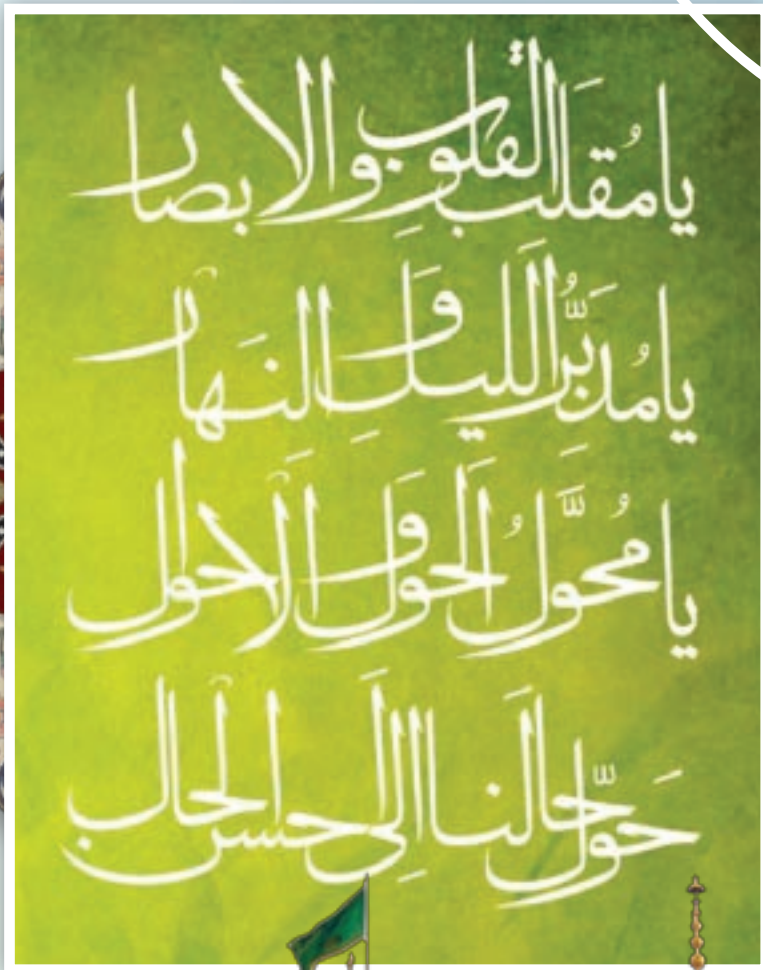 يا مُقلب القلوب والابصار
يا مُدبّر الليل و النهار
يا مُحوّل الحول و الاحوال
حوّل حالنا الى احسن الحال